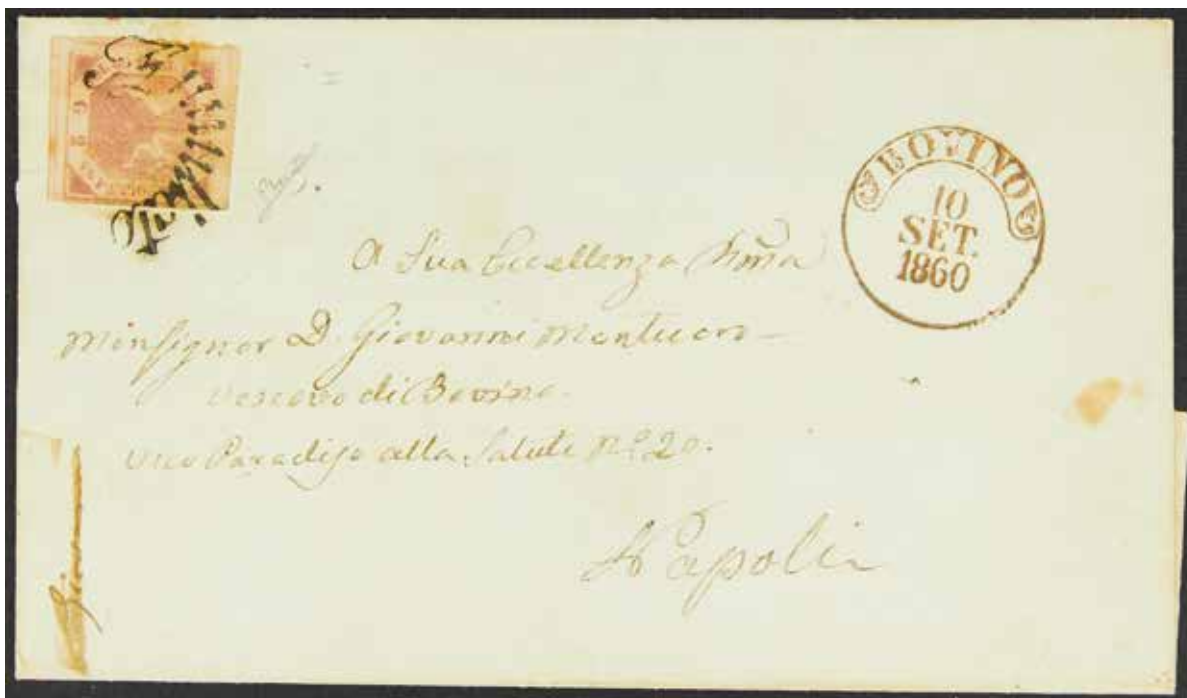 Annullato
BOVINO
10
SET.
1860
A Sua Eccellenza
Monsignor D. Giovanni Montuoro
Vescovo di Bovino
Vico Paradiso alla Salute Nº 20.
Napoli